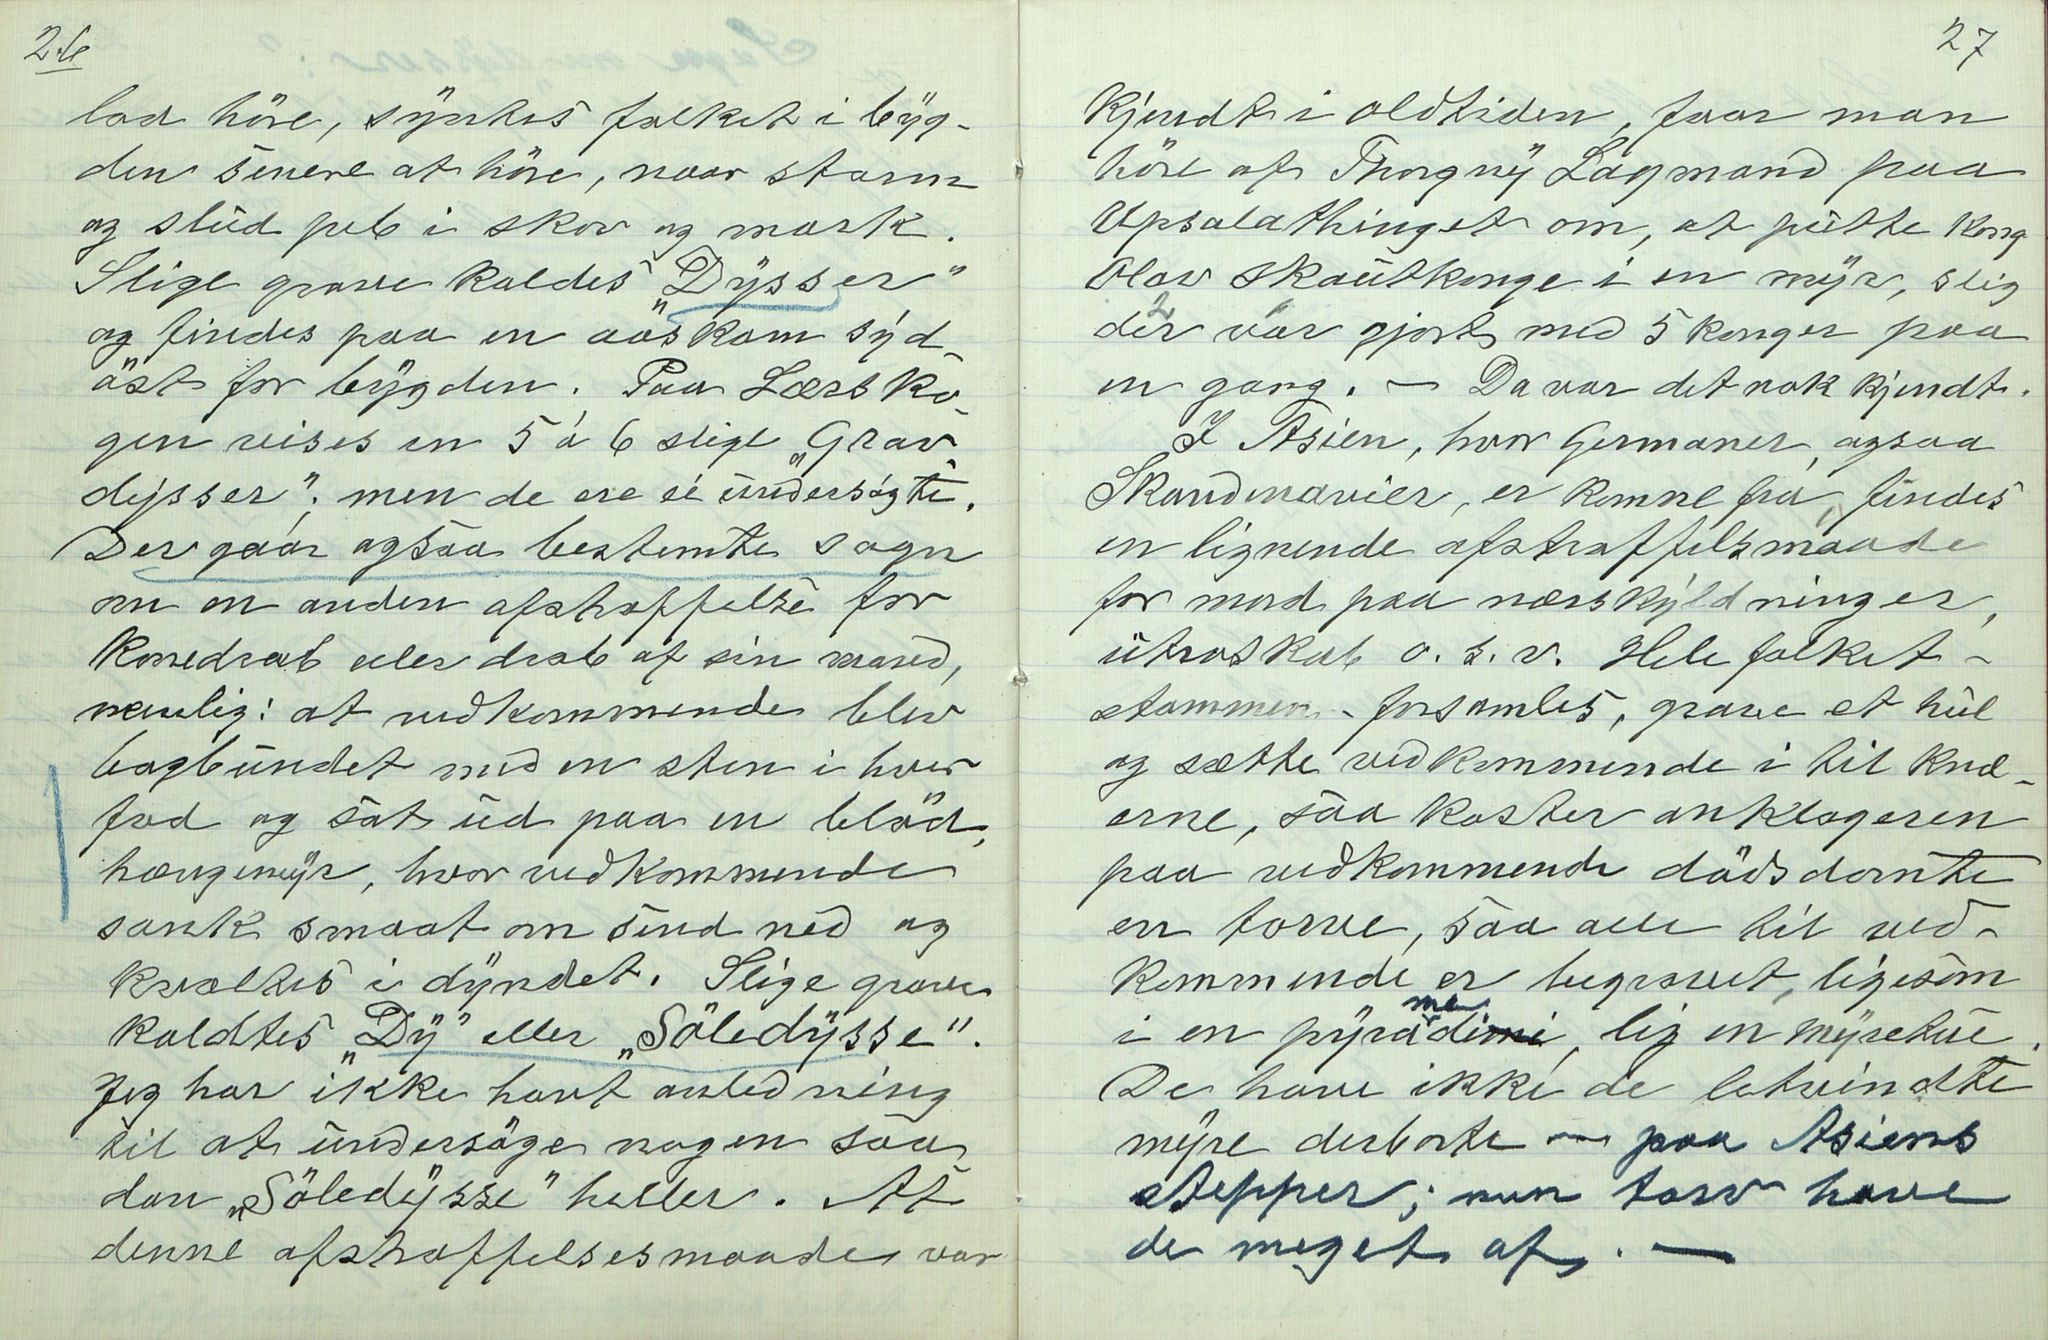 26
lod höre, syntes folket i byg-
den senere at höre, naar storm
og slud peb i skov og mark.
Slige grave kaldes „Dysser"
og findes paa en aaskam syd-
öst for bygden. Paa Lærsko-
gen vises en 5 á 6 slige „Grav-
dysser"; men de ere ei undersögte.
Der gaar ogsaa bestemte sagn
om en anden afstraffelse for
konedrab eller drab af sin mand,
nemlig: at vedkommende blev
bagbundet med en sten i hver
fod og sat ud paa en blöd,
hængemyr, hvor vedkommende
sank smaat om send ned og
kvaltes i dyndet. Slige grave
kaldtes „Dy" eller „Söledysse".
Jeg har ikke havt anledning
til at undersöge nogen saa
dan „Söledysse" heller. At
denne afstraffelsesmaade var
27
kjendt i oldtiden, faar man
höre af Thorgny Lagmand paa
Upsalathinget om, at putte kong
Olav Skautkonge i en myr, slig
der var gjort med 5 konger paa
en gang. — Da var det nok kjendt.
I Asien, hvor Germaner, ogsaa
Skandinavier, er komne fra, findes
en lignende afstraffelsmaade
for mord paa nærskyldninger,
utroskab o. s. v. Hele folket -
stammen - forsamles, grave et hul
og sætte vedkommende i til knæ-
erne, saa kaster anklageren
paa vedkommende dödsdömte
en torve, saa alle til ved-
kommende er begravet, ligesom
i en pyramide, lig en myretue.
De have ikke de letvindte
myre derborte — paa Asiens
stepper; men torv have
de meget af. —